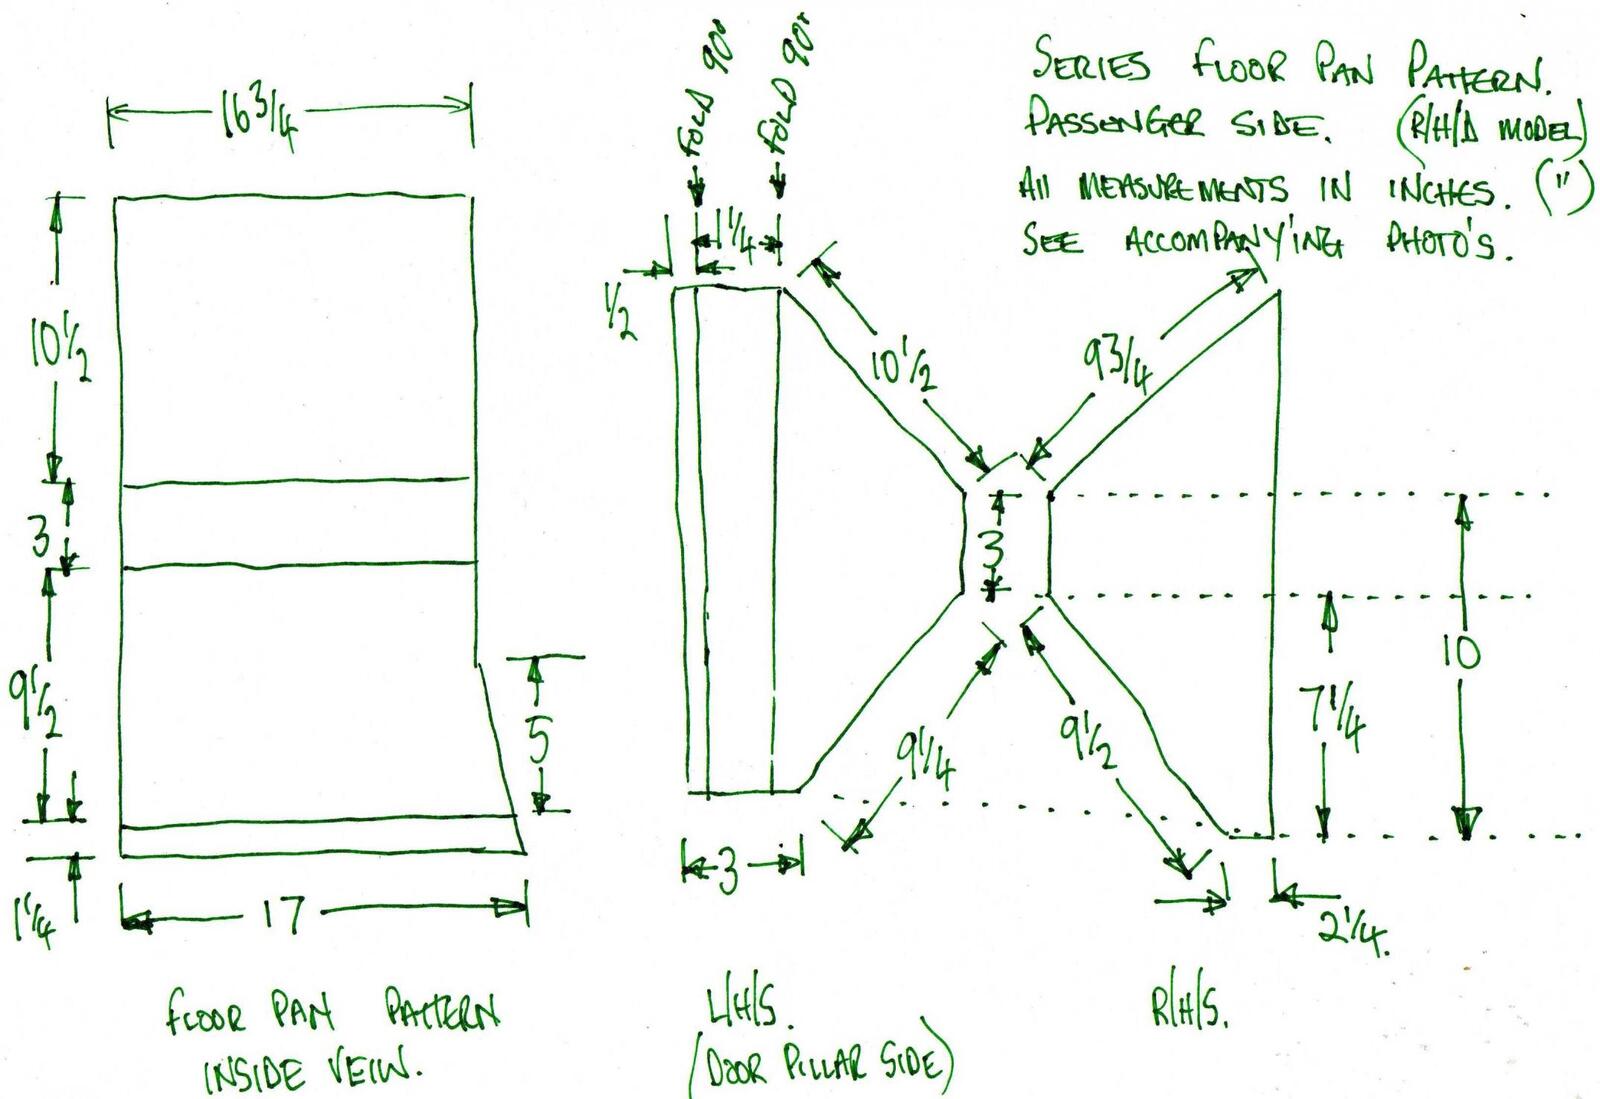 SERIES FLOOR PAN PATTERN.
PASSENGER SIDE. (R/H/D MODEL)
All MEASUREMENTS IN INCHES. (")
SEE ACCOMPANY'ING PHOTO'S.
16 3/4
10 1/2
3
9 1/2
1 1/4
5
17
FLOOR PAN PATTERN
INSIDE VEIW.
FOLD 90°
FOLD 90°
1 1/4
1/2
10 1/2
9 3/4
3
9 1/4
9 1/2
7 1/4
10
3
2 1/4.
L/H/S.
(DOOR PILLAR SIDE)
R/H/S.